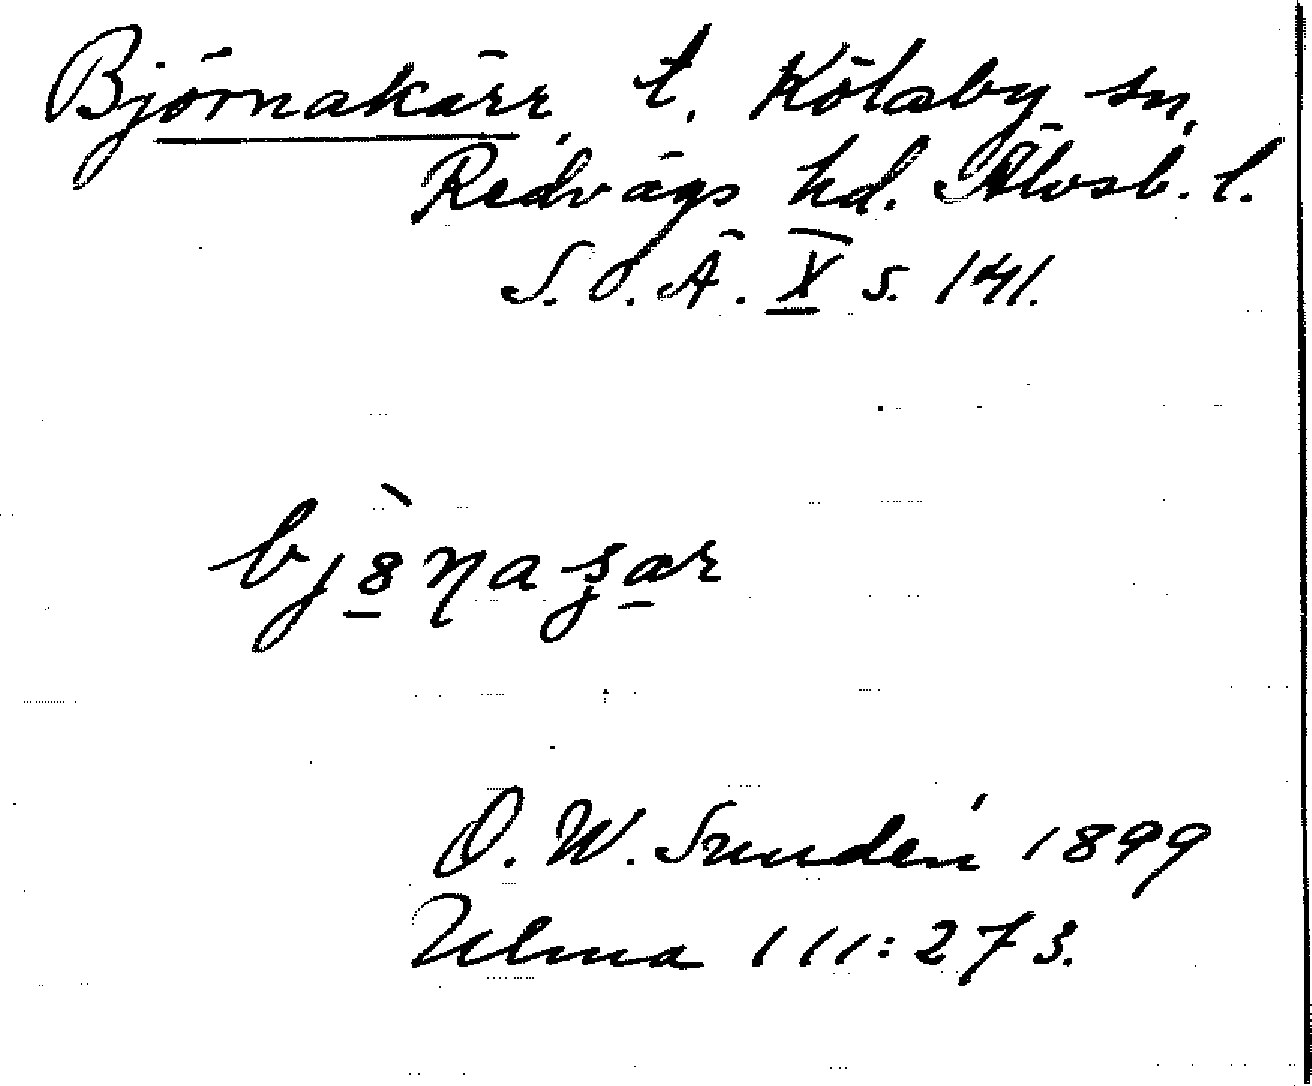 Björnakärr, t. Kölaby sn,
Redvägs hd. Älvsb. l.
S. O. Ä. X s. 141.
O. W. Sundén 1899
Ulma 111:273.